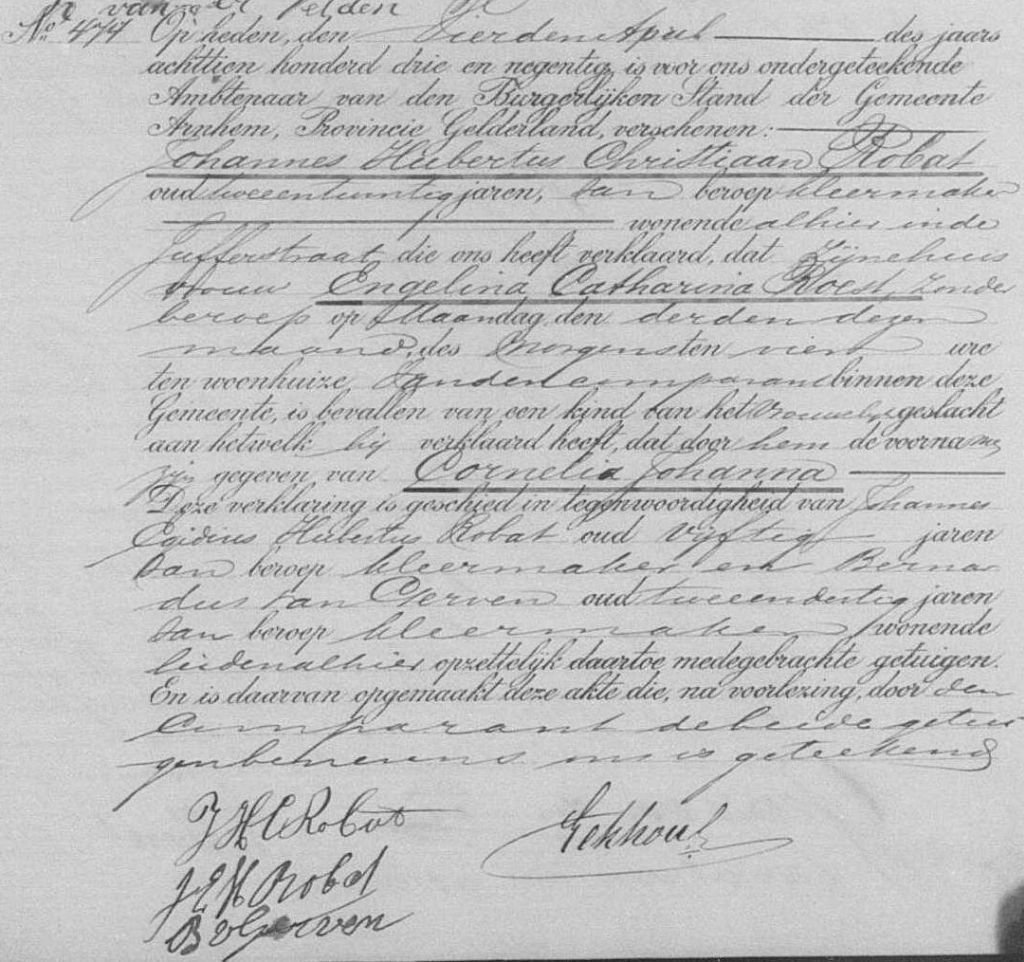 van der Velden
No. 474 Op heden, den Vierden April des jaars
achttien honderd drie en negentig, is voor ons ondergeteekende
Ambtenaar van den Burgerlijken Stand der Gemeente
Arnhem, Provincie Gelderland, verschenen:
Johannes Hubertus Christiaan Robat
oud tweeentwintig jaren, van beroep kleermaker
wonende alhier in de
Jufferstraat, die ons heeft verklaard, dat zijne huis
vrouw Engelina Catharina Roest, zonder
beroep op Maandag, den derden dezer
maand, des morgens ten vier ure
ten woonhuize, van den comparant binnen deze
Gemeente, is bevallen van een kind van het Vrouwelijk geslacht
aan hetwelk hij verklaard heeft, dat door hem de voornamen
zijn gegeven van Cornelia Johanna
Deze verklaring is geschied in tegenwoordigheid van Johannes
Egidius Hubertus Robat oud Vijftig jaren
van beroep kleermaker en Berna
dus van Gerven oud tweeendertig jaren
van beroep kleermaker, wonende
beiden alhier opzettelijk daartoe medegebrachte getuigen.
En is daarvan opgemaakt deze akte die, na voorlezing, door den
Comparant de beide getui
gen benevens ons is geteekend
J H C Robat
Eekhout
J E H Robat
B v Gerven